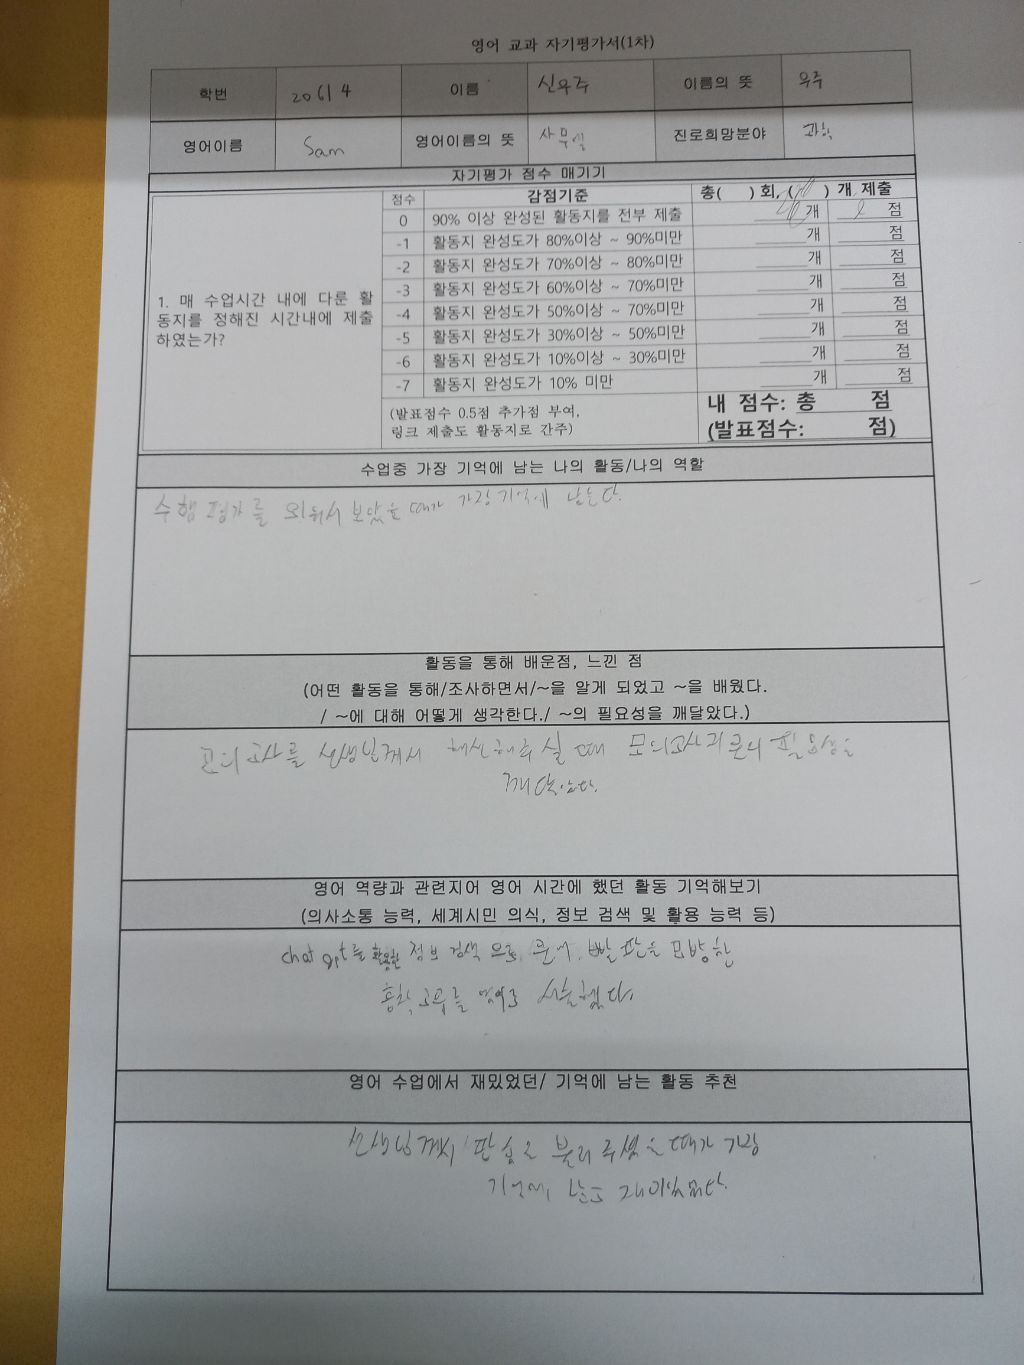 영어 교과 자기평가서(1차)
학번 20614 이름 신우주 이름의 뜻 우주
영어이름 Sam 영어이름의 뜻 사무엘 진로희망분야 과학
자기평가 점수 매기기
점수 감점기준 총( ) 회, ( ) 개 제출
0 90% 이상 완성된 활동지를 전부 제출 개 점
-1 활동지 완성도가 80%이상 ~ 90%미만 개 점
-2 활동지 완성도가 70%이상 ~ 80%미만 개 점
-3 활동지 완성도가 60%이상 ~ 70%미만 개 점
1. 매 수업시간 내에 다룬 활
동지를 정해진 시간내에 제출
하였는가?
-4 활동지 완성도가 50%이상 ~ 70%미만 개 점
-5 활동지 완성도가 30%이상 ~ 50%미만 개 점
-6 활동지 완성도가 10%이상 ~ 30%미만 개 점
-7 활동지 완성도가 10% 미만 개 점
(발표점수 0.5점 추가점 부여,
링크 제출도 활동지로 간주)
내 점수: 총 점
(발표점수: 점)
수업중 가장 기억에 남는 나의 활동/나의 역할
수행평가를 외워서 보았을 때가 가장 기억에 남는다.
활동을 통해 배운점, 느낀 점
(어떤 활동을 통해/조사하면서/~을 알게 되었고 ~을 배웠다.
/ ~에 대해 어떻게 생각한다./ ~의 필요성을 깨달았다.)
모의고사를 선생님께서 해석해주실 때 모의고사 기본의 필요성을
깨달았다.
영어 역량과 관련지어 영어 시간에 했던 활동 기억해보기
(의사소통 능력, 세계시민 의식, 정보 검색 및 활용 능력 등)
chat gpt를 활용한 정보 검색으로 문어 빨판을 모방한
흡착고무를 영어로 서술했다.
영어 수업에서 재밌었던/ 기억에 남는 활동 추천
선생님께서 팝송을 불러주셨을 때가 가장
기억에 남고 재미있었다.